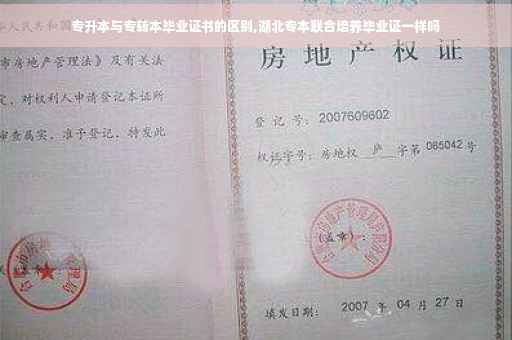 专升本与专转本毕业证书的区别,湖北专本联合培养毕业证一样吗
人民共和国
市房地产管理法》及有关法
定,对权利人申请登记本证所
审查属实,准予登记,特发此
房地产权
登记号:2007609602
权证字号:房地权 庐 字第 085042 号
(盖章):
填发日期: 2007 年 04 月 27 日